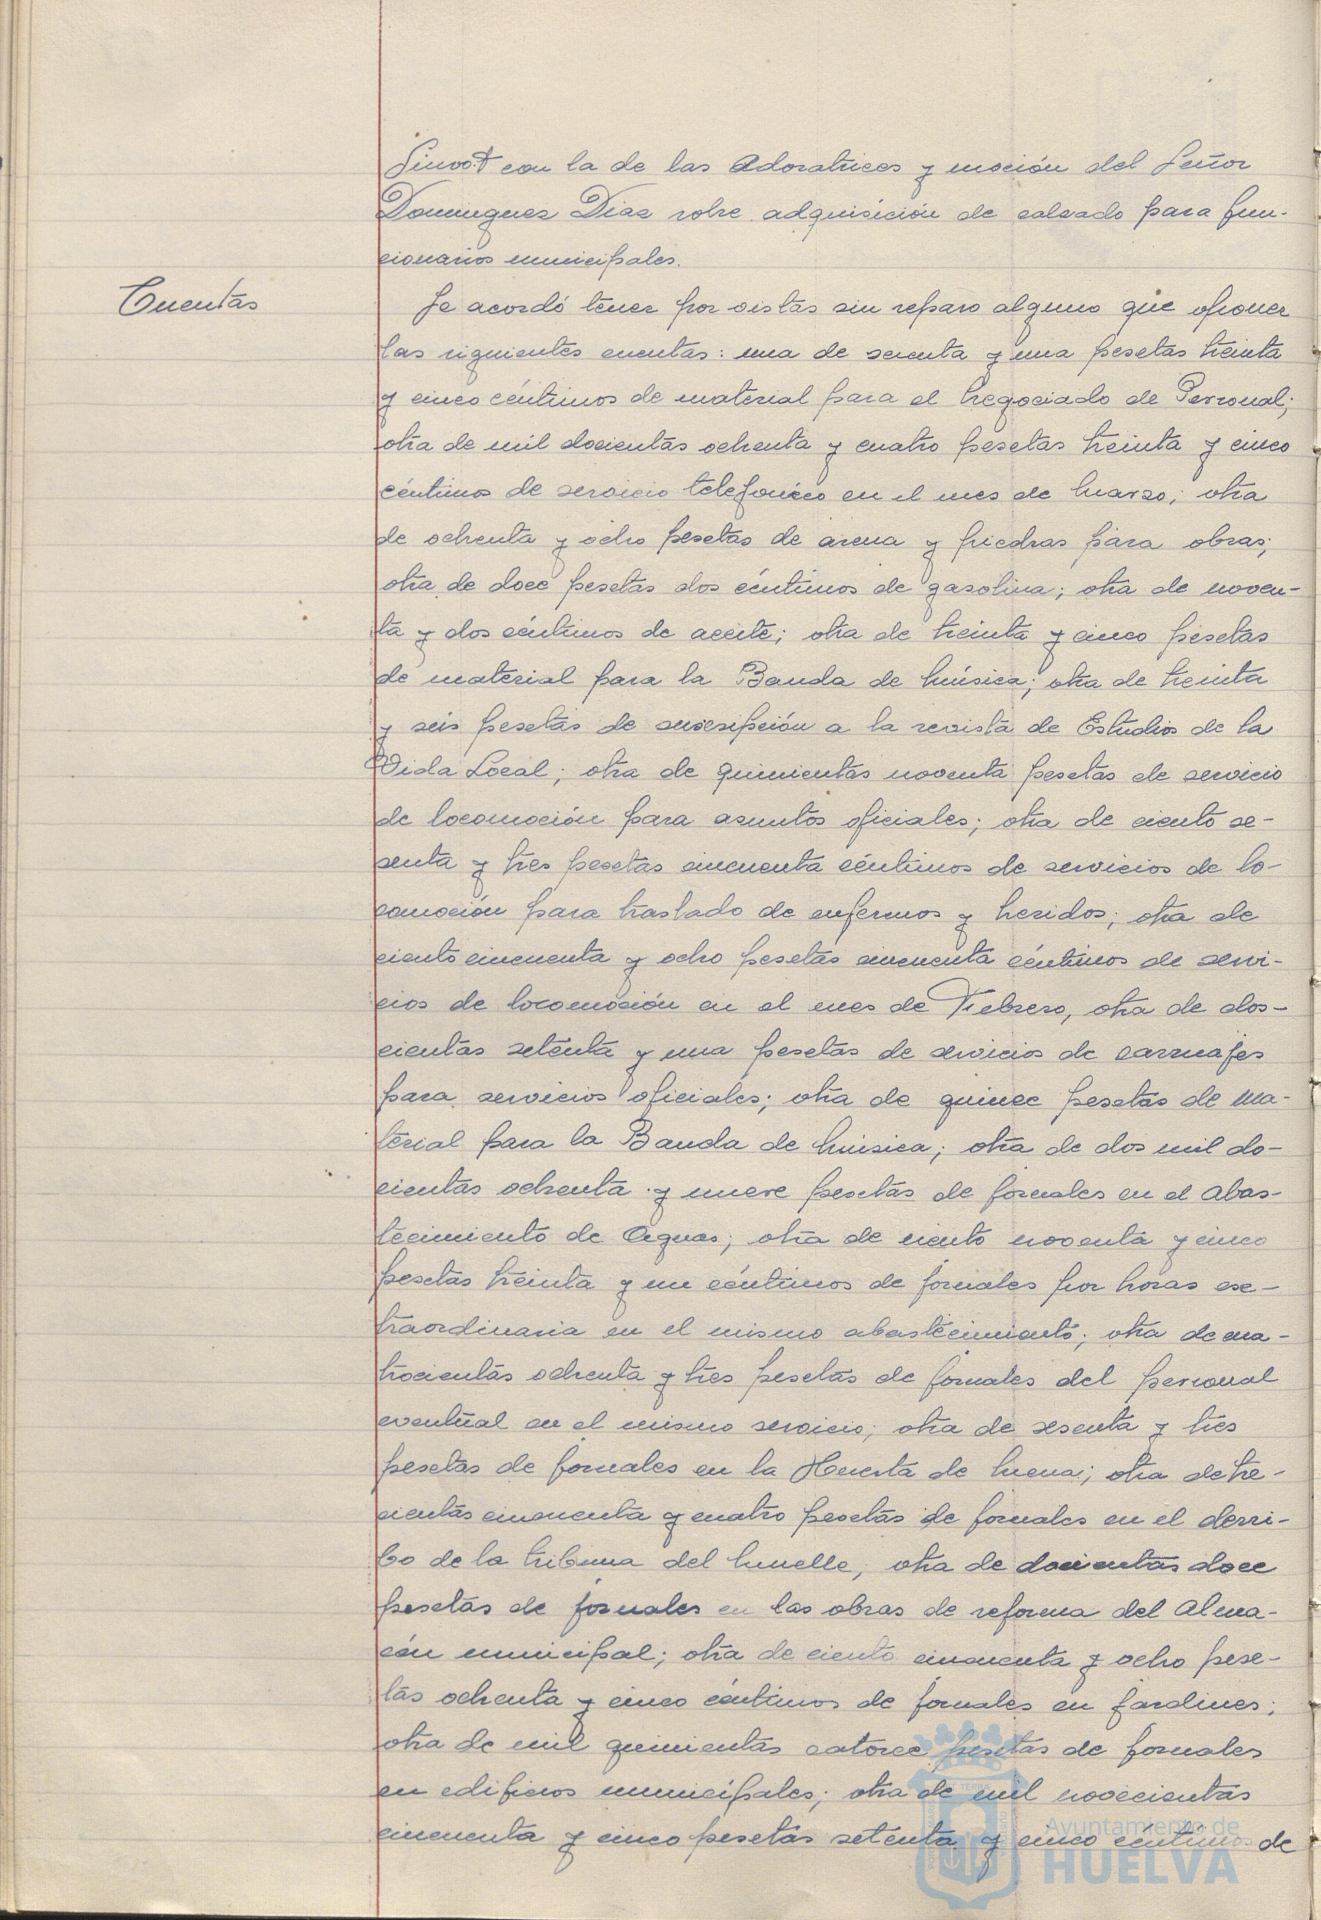 con la de las Adoratrices y moción del Señor
Dominguez Diaz sobre adquisición de calzado para fun-
cionarios municipales.
Cuentas
Se acordó tener por vistas sin reparo alguno que oponer
las siguientes cuentas: una de sesenta y una pesetas treinta
y cinco céntimos de material para el Negociado de Personal;
otra de mil docientas ochenta y cuatro pesetas treinta y cinco
céntimos de servicio telefonico en el mes de Marzo; otra
de ochenta y ocho pesetas de arena y piedras para obras;
otra de doce pesetas dos céntimos de gasolina; otra de noven-
ta y dos céntimos de aceite; otra de treinta y cinco pesetas
de material para la Banda de Música; otra de treinta
y seis pesetas de suscripción a la revista de Estudios de la
Vida Local; otra de quinientas noventa pesetas de servicio
de locomoción para asuntos oficiales; otra de ciento se-
senta y tres pesetas cincuenta céntimos de servicios de lo-
comoción para traslado de enfermos y heridos; otra de
ciento cincuenta y ocho pesetas cincuenta céntimos de servi-
cios de locomoción en el mes de Febrero, otra de dos-
cientas setenta y una pesetas de servicios de carruajes
para servicios oficiales; otra de quince pesetas de ma-
terial para la Banda de Música; otra de dos mil do-
cientas ochenta y nueve pesetas de jornales en el Abas-
tecimiento de Aguas; otra de ciento noventa y cinco
pesetas treinta y un céntimos de jornales por horas ex-
traordinaria en el mismo abastecimiento; otra de cua-
trocientas ochenta y tres pesetas de jornales del personal
eventual en el mismo servicio; otra de sesenta y tres
pesetas de jornales en la Huerta de Mena; otra de tre-
cientas cincuenta y cuatro pesetas de jornales en el derri-
bo de la tribuna del Muelle, otra de docientas doce
pesetas de jornales en las obras de reforma del Alma-
cén municipal; otra de ciento cincuenta y ocho pese-
tas ochenta y cinco céntimos de jornales en jardines;
otra de mil quinientas catorce pesetas de jornales
en edificios municipales; otra de mil novecientas
cincuenta y cinco pesetas setenta y cinco céntimos de
Ayuntamiento de
HUELVA